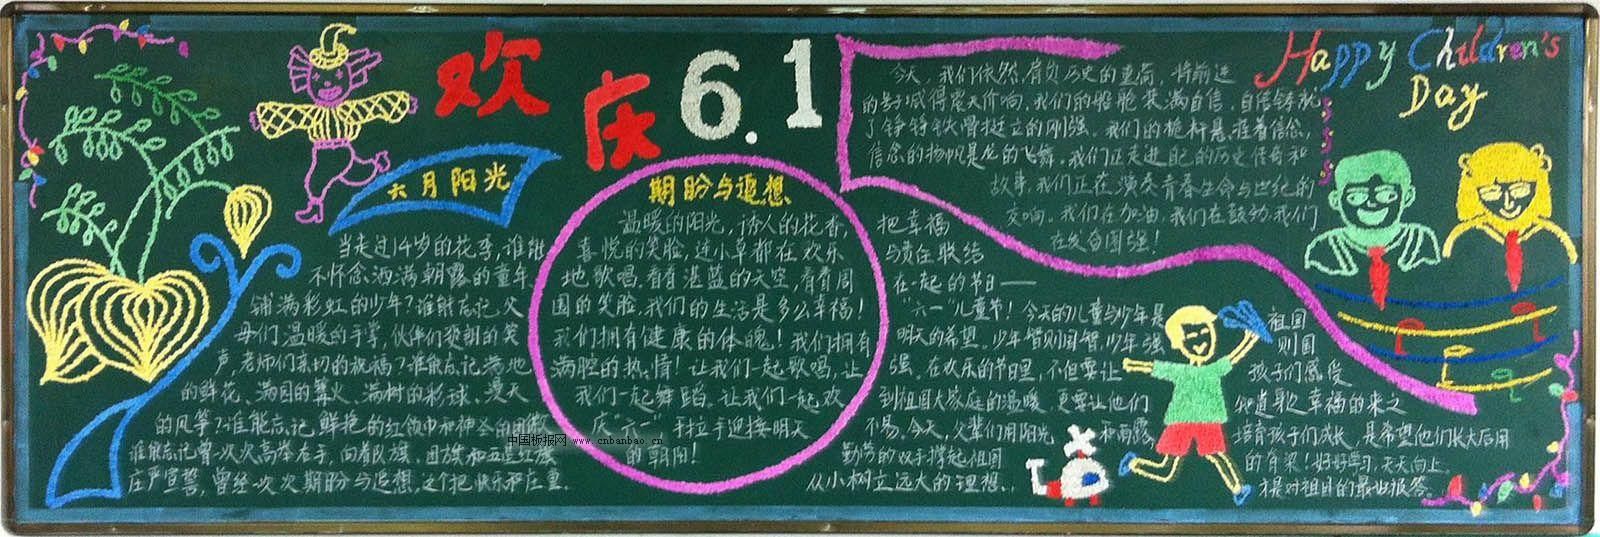 欢庆6.1
Happy Children's
Day
六月阳光
当走过14岁的花季,谁能
不怀念洒满朝露的童年,
铺满彩虹的少年?谁能忘记父
母们温暖的手掌,伙伴们爽朗的笑
声,老师们亲切的祝福?谁能忘记满地
的鲜花、满园的篝火、满树的彩球、漫天
的风筝?谁能忘记,鲜艳的红领巾和神圣的团徽
谁能忘记曾一次次高举右手,向着队旗、团旗和五星红旗
庄严宣誓,曾经一次次期盼与追想,这个把快乐和庄重、
期盼与追想
温暖的阳光,诱人的花香
喜悦的笑脸,连小草都在欢乐
地歌唱.看看湛蓝的天空,看看周
围的笑脸,我们的生活是多么幸福!
我们拥有健康的体魄!我们拥有
满腔的热情!让我们一起歌唱,让
我们一起舞蹈,让我们一起欢
庆"六一",手拉手迎接明天
的朝阳!
中国板报网 www.cnbanbao.cn
把幸福
与责任联结
在一起的节日——
"六一"儿童节!今天的儿童与少年是祖国
明天的希望。少年智则国智,少年强则国
强。在欢乐的节日里,不但要让孩子们感受
到祖国大家庭的温暖,更要让他们知道
幸福的来之
不易。今天,父辈们用阳光和雨露,培育孩子们成长,是希望他们长大后用
勤劳的双手撑起祖国的脊梁!好好学习,天天向上.
从小树立远大的理想,才是对祖国的最好报答。
今天,我们依然肩负历史的重荷,将前进
的号子喊得震天价响.我们的船舱装满自信,自信铸就
了铮铮铁骨挺立的刚强。我们的桅杆悬挂着信念,
信念的扬帆是龙的飞舞。我们正走进自己的历史传奇和
故事,我们正在演奏青春生命与世纪的
交响。我们在加油,我们在鼓劲,我们
在发奋图强!